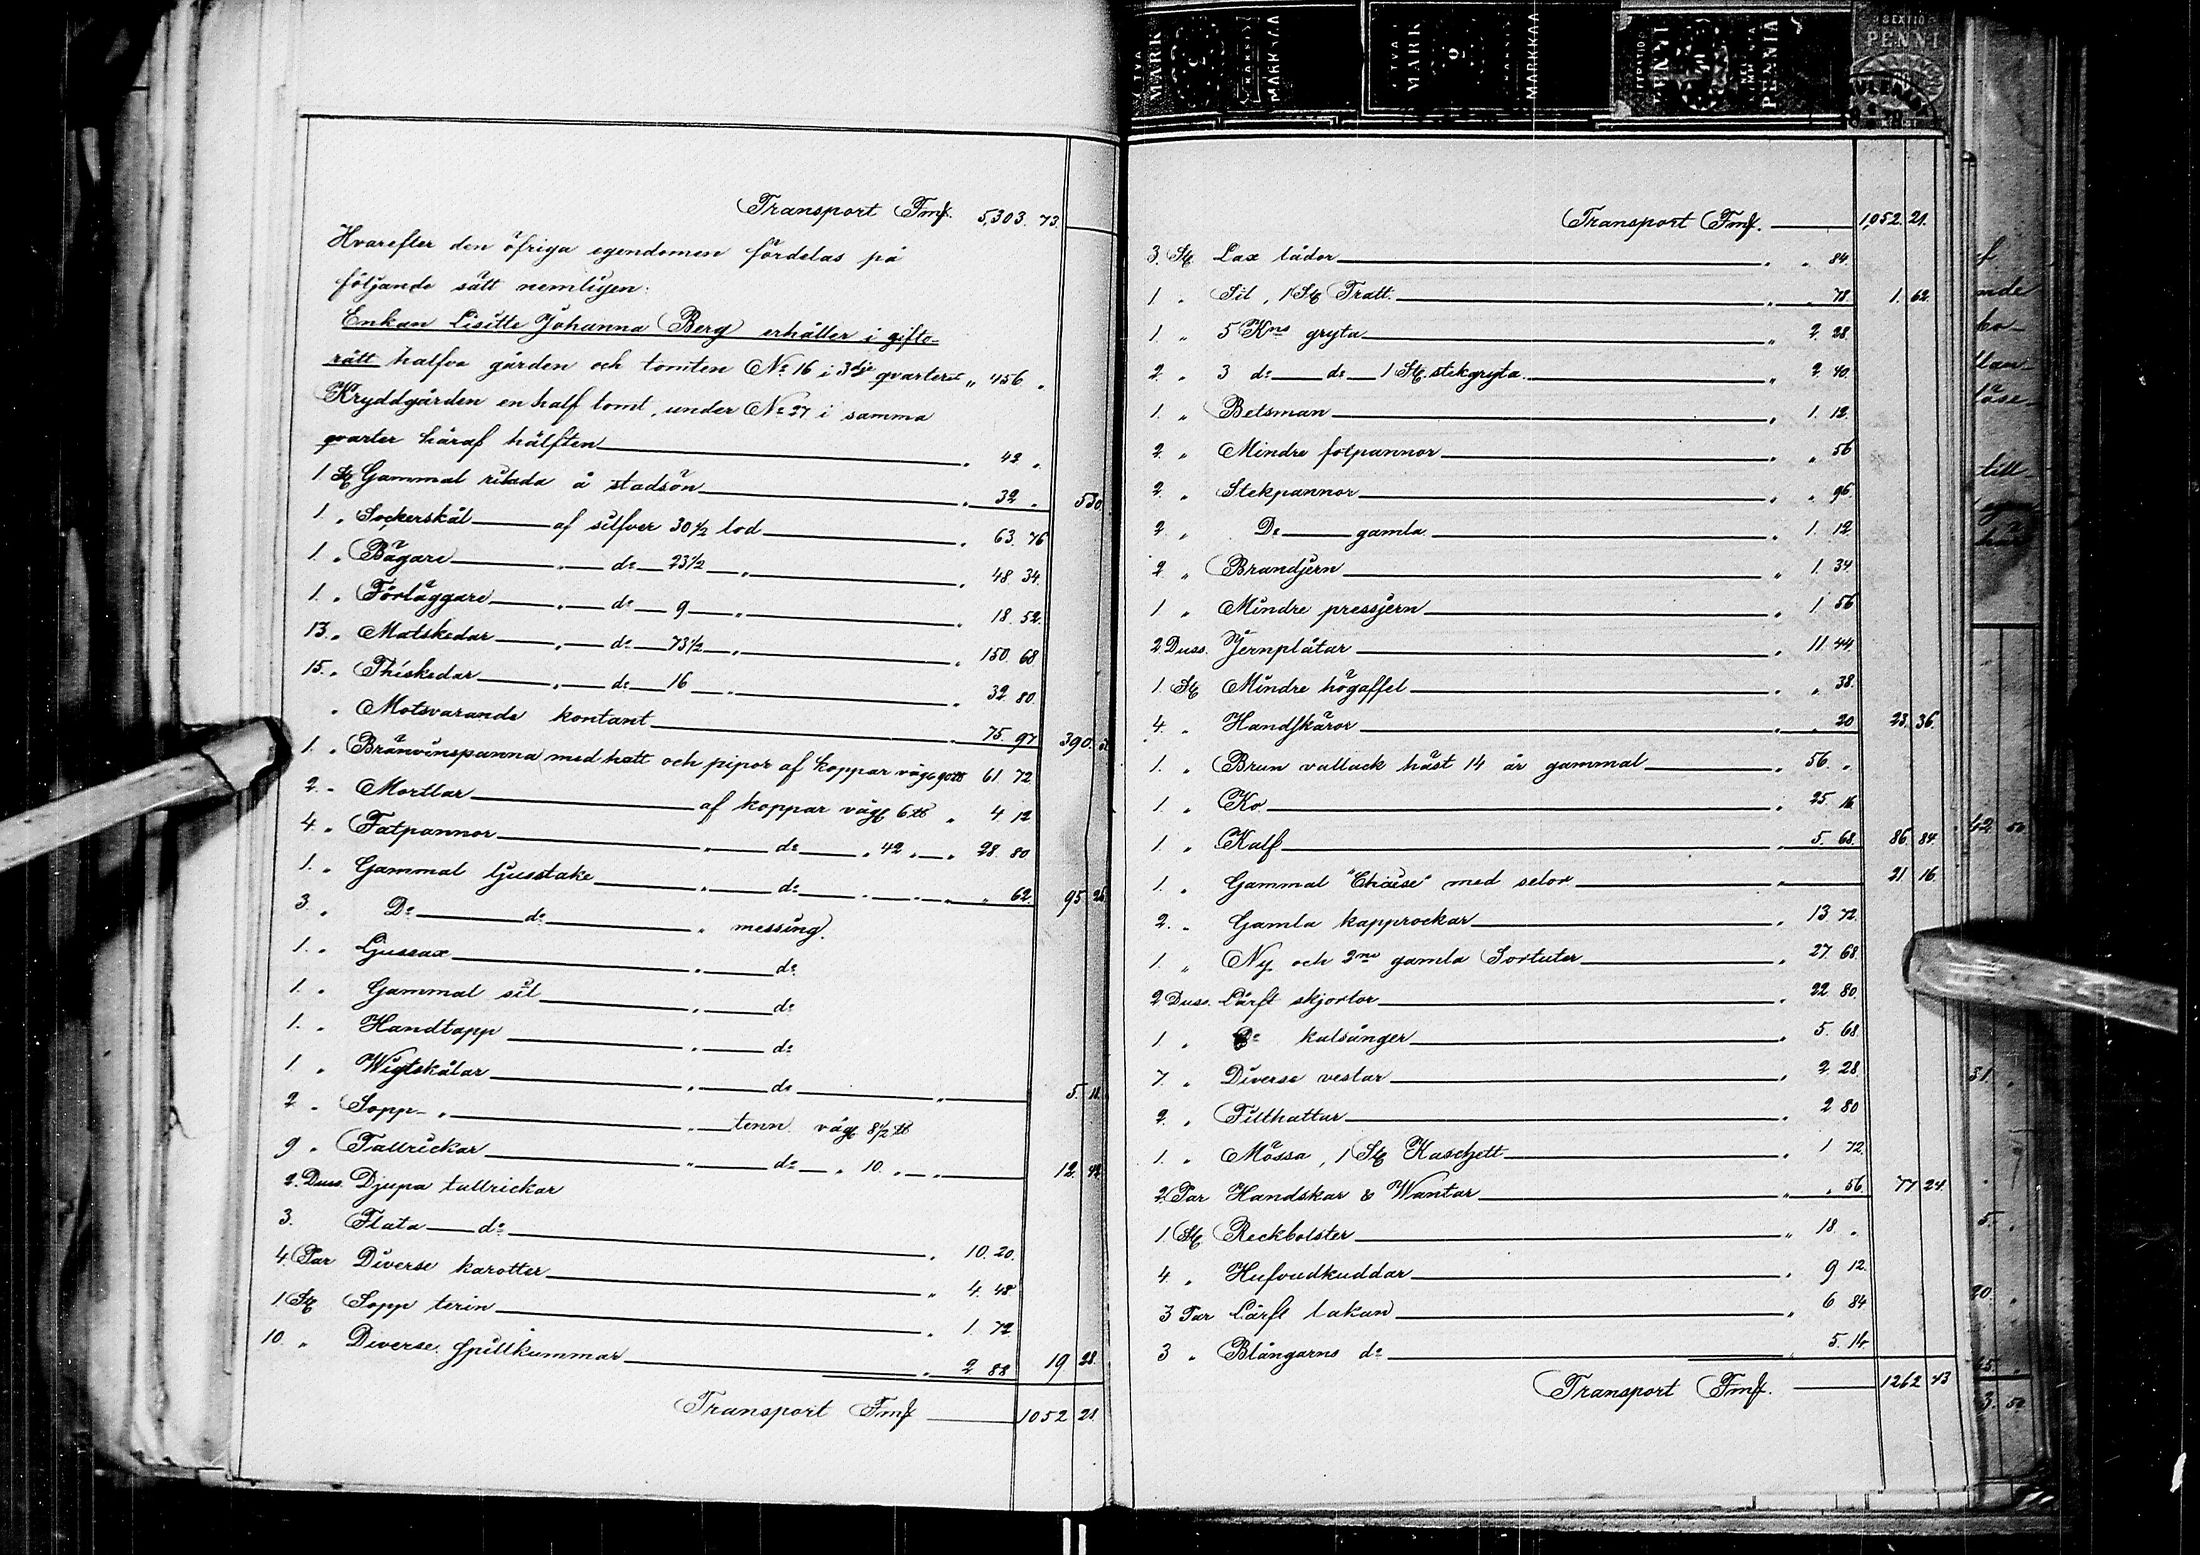 Transport Fmk. 5,303. 73.
Hvarefter den öfriga egendomen fördelas på
följande sätt nemligen:
Enkan Lisitte Johanna Berg erhåller i gifto-
rätt halfva gården och tomten No 16 i 3dje qvarteret „ 456 „
Kryddgården en half tomt, under No 27 i samma
qvarter häraf hälften „ 42 „
1 St Gammal rialada å stadsön „ 32 „ 530.
1. „ Sockerskål af silfver 30 1/2 lod „ 63. 76
1. „ Bägare „ do 23 1/2 „ „ 48 34.
1. „ Förläggare „ do 9 „ „ 18. 52.
13. „ Matskedar „ do 73 1/2 „ „ 150. 68
15. „ Théskedar „ do 16 „ „ 32 80.
„ Motsvarande kontant „ 75. 97 390.
1. „ Bränvinspanna med hatt och pipor af koppar väg 90 ℔ 61 72
2. „ Mortlar af koppar väg 6 ℔ „ 4 12
4. „ Fatpannor „ do „ 42 „ „ 28. 80
1. „ Gammal ljusstake „ do „ „ „ „ 62. 95 26
3. „ Do do „ messing.
1. „ Ljussax „ do
1. „ Gammal sil „ do
1. „ Handtapp „ do
1 „ Wigtskålar „ do „ 5.
2 „ Sopp- „ „ tenn väg 8 1/2 ℔
9 „ Tallrickar „ do „ 10. „ „ 12. 42
2. Duss. Djupa tallrickar
3. Flata do „ 10. 20.
4. Par Diverse karotter „ 4. 48
1 St Sopp terin „ 1. 72
10. „ Diverse spillkummar „ 2 88 19. 28.
Transport Fmk 1052 21.
Transport Fmk. 1,052. 21.
3. St Lax lådor „ „ 84.
1 „ Sil, 1 St Tratt. „ „ 78. 1. 62.
1 „ 5 Kns gryta „ 2 28.
2. „ 3 do do 1 St. stekgryta. „ 2 40.
1. „ Betsman „ 1. 12.
2. „ Mindre fotpannor „ „ 56
2. „ Stekpannor „ „ 96.
2 „ Do gamla „ 1. 12
2 „ Brandjern „ 1. 34.
1 „ Mindre pressjern „ 1. 56
2. Duss. Jernplåtar „ 11. 44.
1. St Mindre högaffel „ „ 38.
4. „ Handskäror „ „ 20 23. 36.
1. „ Brun vallack häst 14 år gammal „ 56. „
1. „ Ko „ 25. 16
1. „ Kalf „ 5. 68. 86. 84.
1. „ Gammal "Chaise" med selor „ 21 16.
2. „ Gamla kapprockar „ 13 72.
1. „ Ny och 2ne gamla Sortuter „ 27. 68.
2 Duss. Lärft skjortor „ 22. 80.
1. „ Do kalsånger „ 5. 68.
7. „ Diverse vestar „ 2 28.
2. „ Filthattar „ 2 80
1. „ Mössa, 1 St Kaschett „ 1 72.
2. Par Handskar & Wantar „ „ 56. 77 24.
1 St Reckbolster „ 18. „
4. „ Hufvudkuddar „ 9 12.
3 Par Lärft lakan „ 6 84
3 „ Blångarns do „ 5. 14.
Transport Fmk. 1262 43